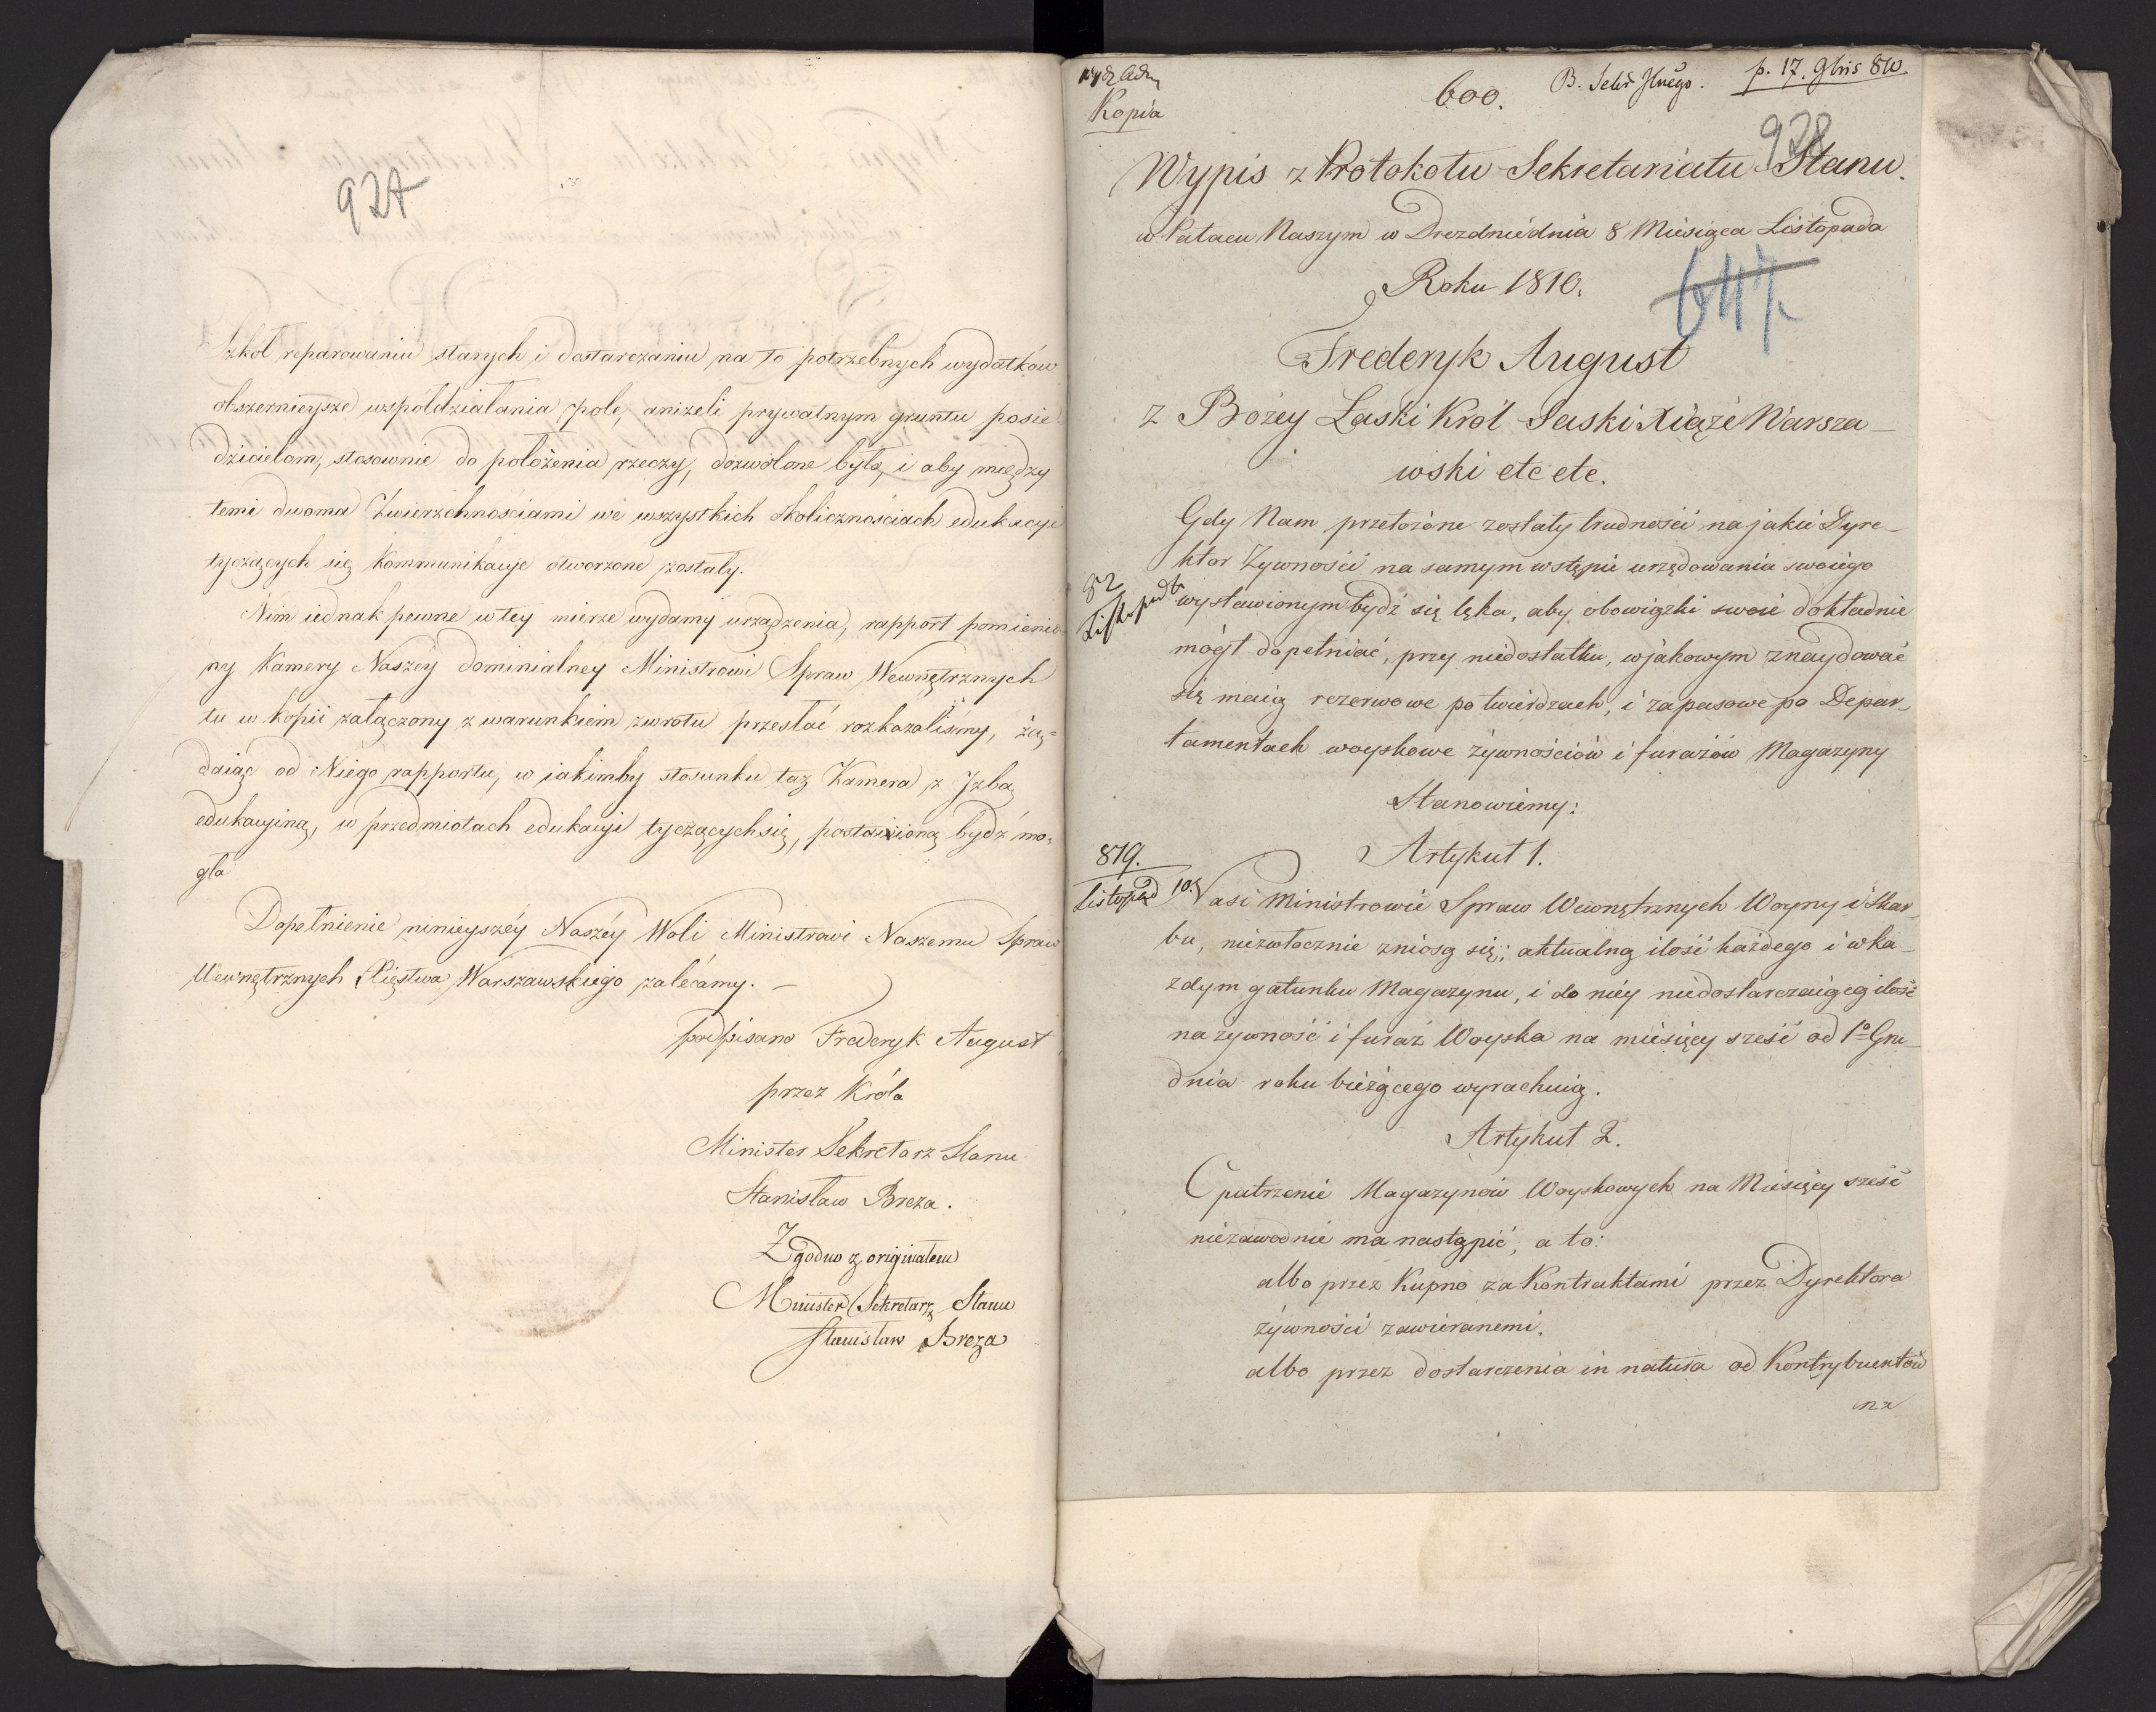 927
Szkół reparowaniu starych i dostarczaniu na to potrzebnych wydatków
obszernieysze współdziałania pole, aniżeli prywatnym gruntu posie
dzicielom, stosownie do położenia rzeczy, dozwolone było, i aby między
temi dwoma Zwierzchnościami we wszystkich okolicznościach edukacyi
tyczących się kommunikacye otworzone zostały.
Nim iednak pewne w tey mierze wydamy urządzenia, rapport pomienio
ny Kamery Naszey dominialney Ministrowi Spraw Wewnętrznych
tu w kopii załączony z warunkiem zwrotu przesłać rozkazaliśmy, żą=
daiąc od Niego rapportu, w iakimby stosunku taż Kamera z Jzbą
edukacyiną, w przedmiotach edukacyi tyczących się, postawioną bydź mo=
gła
Dopełnienie ninieyszéy Naszéy Woli Ministrowi Naszemu Spraw
Wewnętrznych Xięstwa Warszawskiego zalécamy. —
podpisano Frederyk August
przez Króla
Minister Sekretarz Stanu
Stanisław Breza.
Zgodno z originałem
Minister Sekretarz Stanu
Stanisław Breza
Kopia
600.
p. 17. 9bris 810
928
Wypis z Protokołu Sekretariatu Stanu.
w Pałacu Naszym w Dreznie dnia 8 Miesiąca Listopada
Roku 1810.
Frederyk August
z Bożey Łaski Król Saski Xiąże Warsza—
wski etc etc.
Gdy Nam przełożone zostały trudności na jakie Dyre—
ktor Żywności na samym wstępie urzędowania swoiego
82
Listopad
wystawionym bydź się lęka, aby obowiązki swoie dokładnie
mógł dopełniać, przy niedostatku, w jakowym znaydować
się maią rezerwowe po twierdzach, i zapasowe po Depar—
tamentach woyskowe żywnościów i furażów Magazyny
Stanowiemy:
Artykuł 1.
879.
Listopad 10.
Nasi Ministrowie Spraw Wewnętrznych Woyny i Skar—
bu, niezwłocznie zniosą się; aktualną ilość każdego i w ka—
zdym gatunku Magazynu, i do niéy niedostarczaiącą ilość
na żywność i furaż Woyska na miesięcy sześć od 1º Gru—
dnia roku bieżącego wyrachuią.
Artykuł 2.
Opatrzenie Magazynów Woyskowych na Miesięcy sześć
niezawodnie ma nastąpić, a to:
albo przez kupno za Kontraktami przez Dyrektora
żywności zawieranemi.
albo przez dostarczenia in natura od Kontrybuentów
na